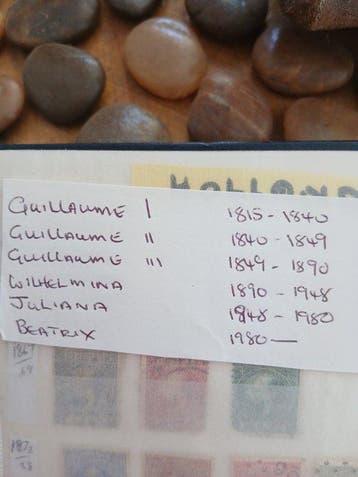 HOLLAND
GUILLAUME I 1815 - 1840
GUILLAUME II 1840 - 1849
GUILLAUME III 1849 - 1890
WILHELMINA 1890 - 1948
JULIANA 1948 - 1980
BEATRIX 1980 —
1867
69
1872